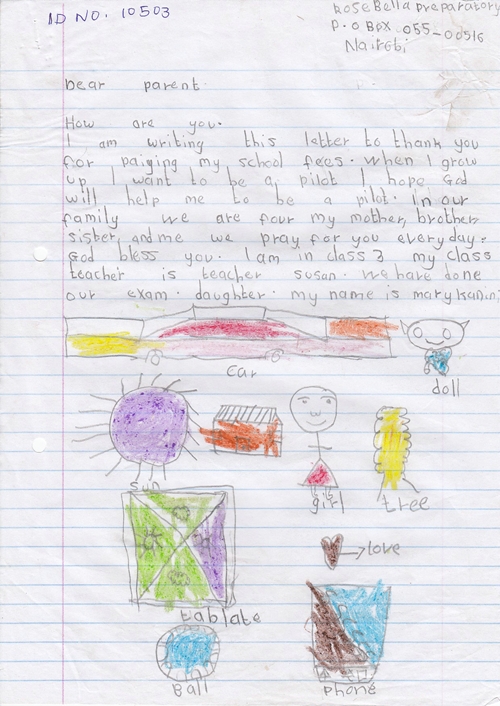 ID NO. 10503
RoseBella preparatory
P.O BOX 055-00516
Nairobi
Dear parent
How are you.
I am writing this letter to thank you
for paiging my school fees. When I grow
up I want to be a pilot I hope God
will help me to be a pilot. In our
family we are four my mother, brother
sister, and me we pray for you everyday.
God bless you. I am in class 3 my class
teacher is teacher susan. We have done
our exam. daughter. my name is mary
car
doll
sun
girl
tree
love
tablate
Ball
phone